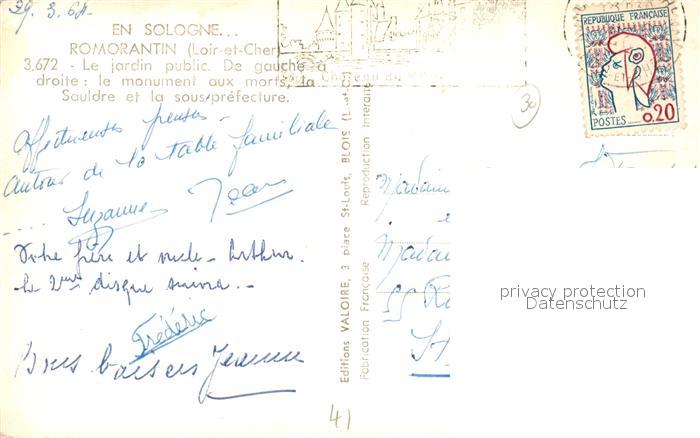 29.3.64
EN SOLOGNE...
ROMORANTIN (Loir-et-Cher)
3.672 - Le jardin public. De gauche à
droite : le monument aux morts, la
Sauldre et la sous-préfecture.
Affectueuses pensées -
autour de la table familiale
.... Suzanne Jean
Votre frère et oncle - Arthur.
Le 2ème disque suivra. -
Frédéric
Bons baisers Jeanne
Editions VALOIRE, 3 place St-Louis, BLOIS
Fabrication Française
Reproduction Interdite
Château du
REPUBLIQUE FRANÇAISE
POSTES 0,20
30
Madam
Madam
55
St
privacy protection
Datenschutz
41